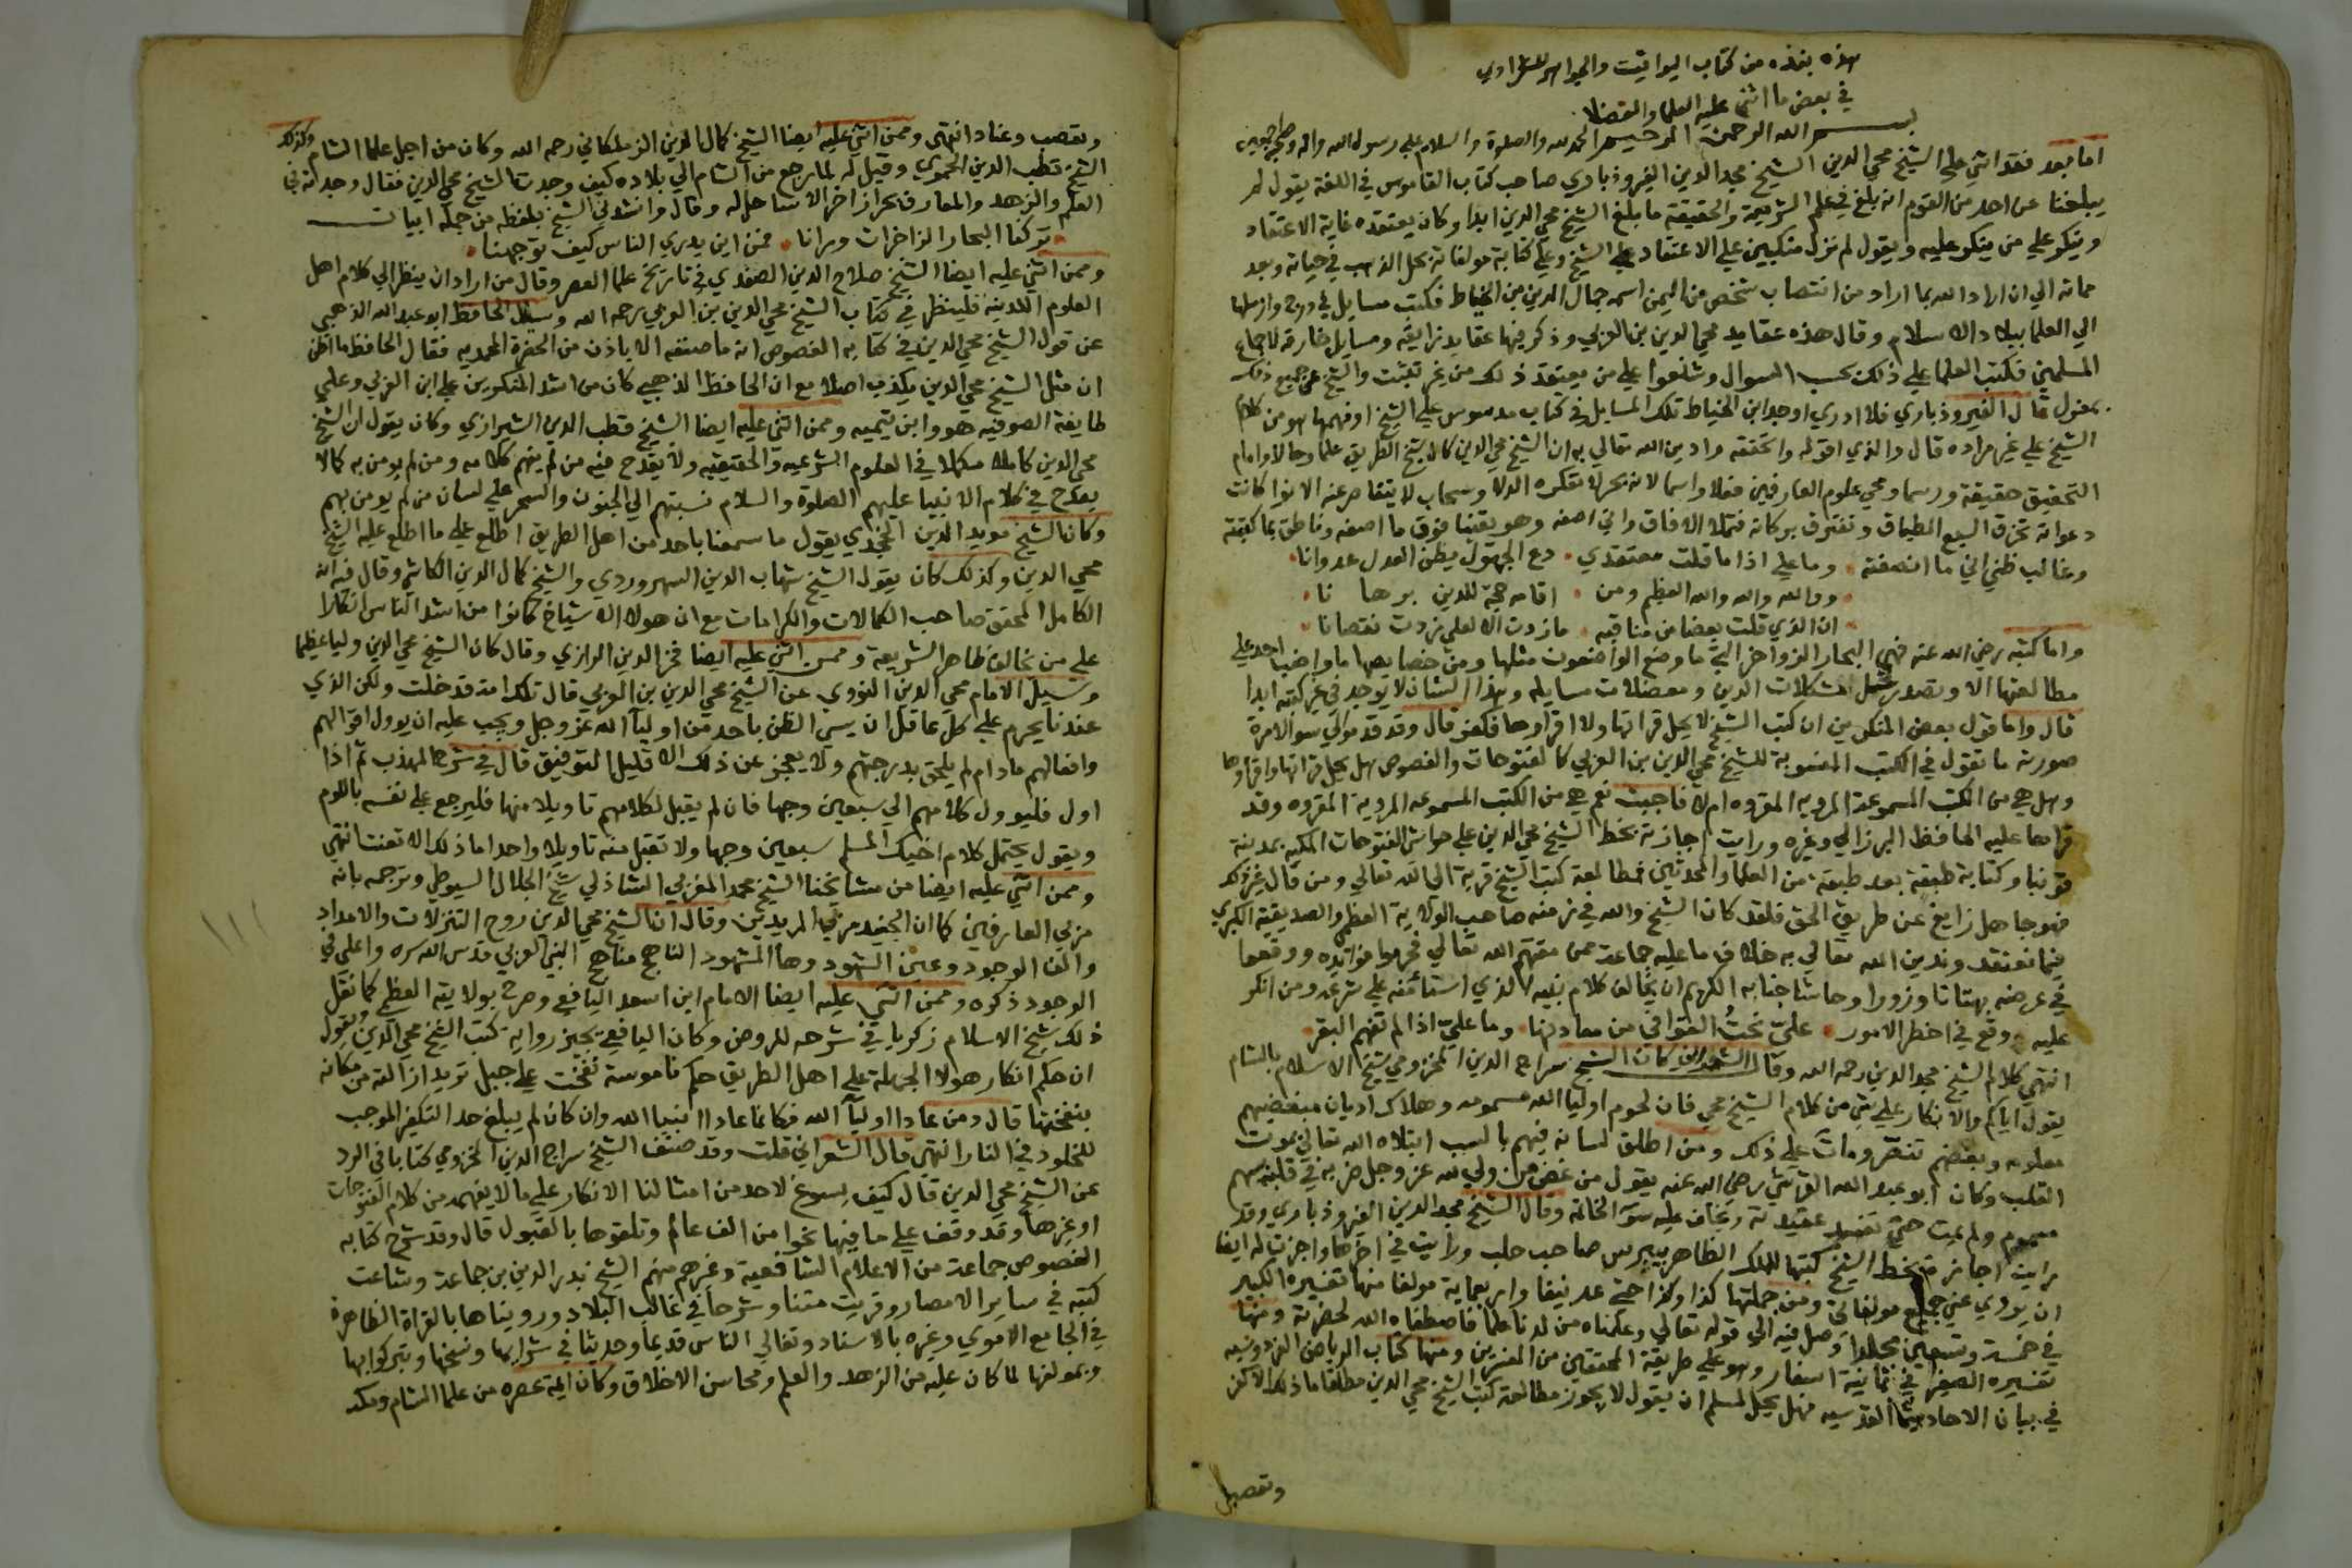 هذه نبذه من كتاب اليواقيت والجواهر للشعراوي
في بعض ما اثنى عليه العلما والفضلا
بسم الله الرحمن الرحيم الحمد لله والصلوة والسلام على رسول الله واله وصحبه اجمعين
اما بعد فقد اثني على الشيخ محي الدين الشيخ مجد الدين الفيروذبادي صاحب كتاب القاموس في اللغة يقول لم
يبلغنا عن احد من القوم انه بلغ في علم الشريعة والحقيقة ما بلغ الشيخ محي الدين ابدا وكان يعتقده غاية الاعتقاد
وينكر على من ينكر عليه ويقول لم نزل منكبين على الاعتقاد على الشيخ وعلى كتابة مولفاته بحل الذهب في حياته وبعد
مماته الي ان اراد الله بما اراد من انتصاب شخص من اليمن اسمه جمال الدين بن الخياط فكتب مسايل في درج وارسلها
الي العلما ببلاد الاسلام وقال هذه عقايد محي الدين بن العربي وذكر فيها عقايد زايفه ومسايل خارقة لاجماع
المسلمين فكتب العلما على ذلك بحسب السوال وشنعوا على من يعتقد ذلك من غير تثبت والشيخ عن جميع ذلك
بمعزل قال الفيروذبادي فلا ادري اوجد ابن الخياط تلك المسايل في كتاب مدسوس على الشيخ او فهمها هو من كلام
الشيخ على غير مراده قال والذي اقوله واتحققه وادين الله تعالي به ان الشيخ محي الدين كان شيخ الطريق علما وحالا وامام
التحقيق حقيقة ورسما ومحي علوم العارفين فعلا واسما لانه بحر لا تكدره الدلا وسحاب لا يتقاصر عنه الانوا كانت
دعواته تخرق السبع الطباق وتفترق بركاته فتملا الافاق واني اصفه وهو يقينا فوق ما اصفه وناطق بما كتبته
وغالب ظني اني ما انصفته • وما علي اذا ما قلت معتقدي • دع الجهول يظن العدل عدوانا •
• ووالله والله والله العظيم ومن • اقامه حجة للدين برها نا •
• ان الذي قلت بعضا من مناقبه • مازدت الا لعلي زدت نقصانا •
واما كتبه رضي الله عنه فهي البحار الزواخر التي ما وضع الواضعون مثلها ومن خصايصها ما واظب احد على
مطالعتها الا وتصدر لحل المشكلات الدين ومعضلات مسايله وهذا الشان لا يوجد في غير كتبه ابدا
قال واما قول بعض المنكرين ان كتب الشيخ لا يحل قراتها ولا اقراوها فكفر قال وقد قدموا لي سوالا مرة
صورته ما تقول في الكتب المنسوبة للشيخ محي الدين بن العربي كالفتوحات والفصوص هل يحل قراتها واقراوها
وهل هي من الكتب المسموعة المروية المقروه ام لا فاجبت نعم هي من الكتب المسموعه المروية المقروه وقد
قراها عليه الحافظ البرزالي وغيره ورايت اجازته بخط الشيخ محي الدين علي حواشي الفتوحات المكيه بمدينة
قونيا وكتابة طبقة بعد طبقة من العلما والمحدثين فمطالعة كتب الشيخ قربة الى الله تعالي ومن قال غير ذلك
فهو جاهل زايغ عن طريق الحق فلقد كان الشيخ والله في زمنه صاحب الولاية العظمى والصديقية الكبري
فيما نعتقد وندين الله تعالي به خلاف ما عليه جماعة ممن مقتهم الله تعالي فحرموا فوايده ووقعوا
في عرضه بهتانا وزورا وحاشا جنابه الكريم ان يخالف كلام نبيه الذي استامنه على شرعه ومن انكر
عليه وقع في اخطر الامور • علي نحت القوافي من معادنها • وما علي اذا لم تفهم البقر •
انتهي كلام الشيخ مجد الدين رحمه الله وقال الشعراني كان الشيخ سراج الدين المخزومي شيخ الاسلام بالشام
يقول اياكم والانكار على شي من كلام الشيخ محي فان لحوم اوليا الله مسمومه وهلاك اديان مبغضيهم
معلومه وبعضهم تنصر ومات على ذلك ومن اطلق لسانه فيهم بالسب ابتلاه الله تعالي بموت
القلب وكان ابو عبد الله القرشي رضي الله عنه يقول من غض من ولي لله عز وجل ضرب في قلبه بسهم
مسموم ولم يمت حتى تفسد عقيدته ويخاف عليه سو الخاتمه وقال الشيخ مجد الدين الفيروذبادي وقد
رايت اجازة بخط الشيخ كتبها للملك الظاهر بيبرس صاحب حلب ورايت في اخرها واجزت له ايضا
ان يروي عني جميع مولفاتي ومن جملتها كذا وكذا حتي عد نيفا واربعماية مولفا منها تفسيره الكبير
في خمسة وتسعين مجلدا وصل فيه الي قوله تعالي وعلمناه من لدنا علما فاصطفاه الله لحضرته ومنها
تفسيره الصغير في ثمانية اسفار وهو على طريقة المحققين من المفسرين ومنها كتاب الرياض الفردوسيه
في بيان الاحاديث القدسيه فهل يحل لمسلم ان يقول لا يجوز مطالعة كتب الشيخ محي الدين مطلقا ما ذلك الا كفر
وتعصب
وتعصب وعناد انتهى وممن اثني عليه ايضا الشيخ كمال الدين الزملكاني رحمه الله وكان من اجل علما الشام وكذلك
الشيخ قطب الدين الحموي وقيل له لما رجع من الشام الي بلاده كيف وجدت الشيخ محي الدين فقال وجدته في
العلم والزهد والمعارف بحرا زاخرا لا ساحل له وقال وانشدني الشيخ بلفظه من جملة ابيات
• تركنا البحار الزاخرات ورانا • فمن اين يدري الناس كيف توجهنا •
وممن اثني عليه ايضا الشيخ صلاح الدين الصفدي في تاريخ علما العصر وقال من اراد ان ينظر الي كلام اهل
العلوم اللدنيه فلينظر في كتاب الشيخ محي الدين بن العربي رحمه الله وسيل الحافظ ابو عبد الله الذهبي
عن قول الشيخ محي الدين في كتابه الفصوص انه ما صنفه الا باذن من الحضرة المحمديه فقال الحافظ ما اظن
ان مثل الشيخ محي الدين يكذب اصلا مع ان الحافظ الذهبي كان من اشد المنكرين على ابن العربي وعلى
طايفة الصوفيه هو وابن تيميه وممن اثني عليه ايضا الشيخ قطب الدين الشيرازي وكان يقول ان الشيخ
محي الدين كاملا مكملا في العلوم الشرعيه والحقيقيه ولا يقدح فيه من لم يفهم كلامه ومن لم يومن به كما لا
يقدح في كلام الانبيا عليهم الصلوة والسلام نسبتهم الي الجنون والسحر على لسان من لم يومن بهم
وكان الشيخ مويد الدين الخجندي يقول ما سمعنا باحد من اهل الطريق اطلع على ما اطلع عليه الشيخ
محي الدين وكذلك كان يقول الشيخ شهاب الدين السهروردي والشيخ كمال الدين الكاشي وقال فيه انه
الكامل المحقق صاحب الكمالات والكرامات مع ان هولا الاشياخ كانوا من اشد الناس انكارا
على من يخالف ظاهر الشريعة وممن اثني عليه ايضا فخر الدين الرازي وقال كان الشيخ محي الدين وليا عظيما
وسيل الامام محي الدين النووي عن الشيخ محي الدين بن العربي قال تلك امة قد خلت ولكن الذي
عندنا يحرم على كل عاقل ان يسي الظن باحد من اوليآ الله عز وجل ويجب عليه ان يوول اقوالهم
وافعالهم مادام لم يلحق بدرجتهم ولا يعجز عن ذلك الا قليل التوفيق قال في شرح المهذب ثم اذا
اول فليوول كلامهم الي سبعين وجها فان لم يقبل لكلامهم تاويلا منها فليرجع على نفسه باللوم
ويقول يحتمل كلام اخيك المسلم سبعين وجها ولا تقبل منه تاويلا واحدا ما ذلك الا تعنت انتهي
وممن اثني عليه ايضا من مشايخنا الشيخ محمد المغربي الشاذلي شيخ الجلال السيوطي وترجمه بانه
مربي العارفين كما ان الجنيد مربي المريدين وقال ان الشيخ محي الدين روح التنزلات والامداد
والف الوجود وعين الشهود وها المشهود الناهج مناهج النبي العربي قدس الله سره واعلى في
الوجود ذكره وممن اثني عليه ايضا الامام ابن اسعد اليافعي وصرح بولايته العظمي كما نقل
ذلك شيخ الاسلام زكريا في شرحه للروض وكان اليافعي يجيز رواية كتب الشيخ محي الدين ويقول
ان حكم انكار هولا الجهلة على اهل الطريق حكم ناموسة نفخت على جبل تريد ازالته من مكانه
بنفختها قال ومن عادا اوليآ الله فكانما عادا انبيا الله وان كان لم يبلغ حد التكفير الموجب
للخلود في النار انتهي قال الشعراني قلت وقد صنف الشيخ سراج الدين المخزومي كتابا في الرد
عن الشيخ محي الدين قال كيف يسوغ لاحد من امثالنا الانكار على ما لا يفهمه من كلام الفتوحات
او غيرها وقد وقف على ما فيها نحوا من الف عالم وتلقوها بالقبول قال وقد شرح كتابه
الفصوص جماعة من الاعلام الشافعية وغيرهم منهم الشيخ بدر الدين بن جماعة وشاعت
كتبه في ساير الامصار وقريت متنا وشرحا في غالب البلاد ورويناها بالقراة الظاهرة
في الجامع الاموي وغيره بالاسناد وتغالي الناس قديما وحديثا في شرايها ونسخها وتبركوا بها
وبمولفها لما كان عليه من الزهد والعلم ومحاسن الاخلاق وكان ايمة عصره من علما الشام ومكه